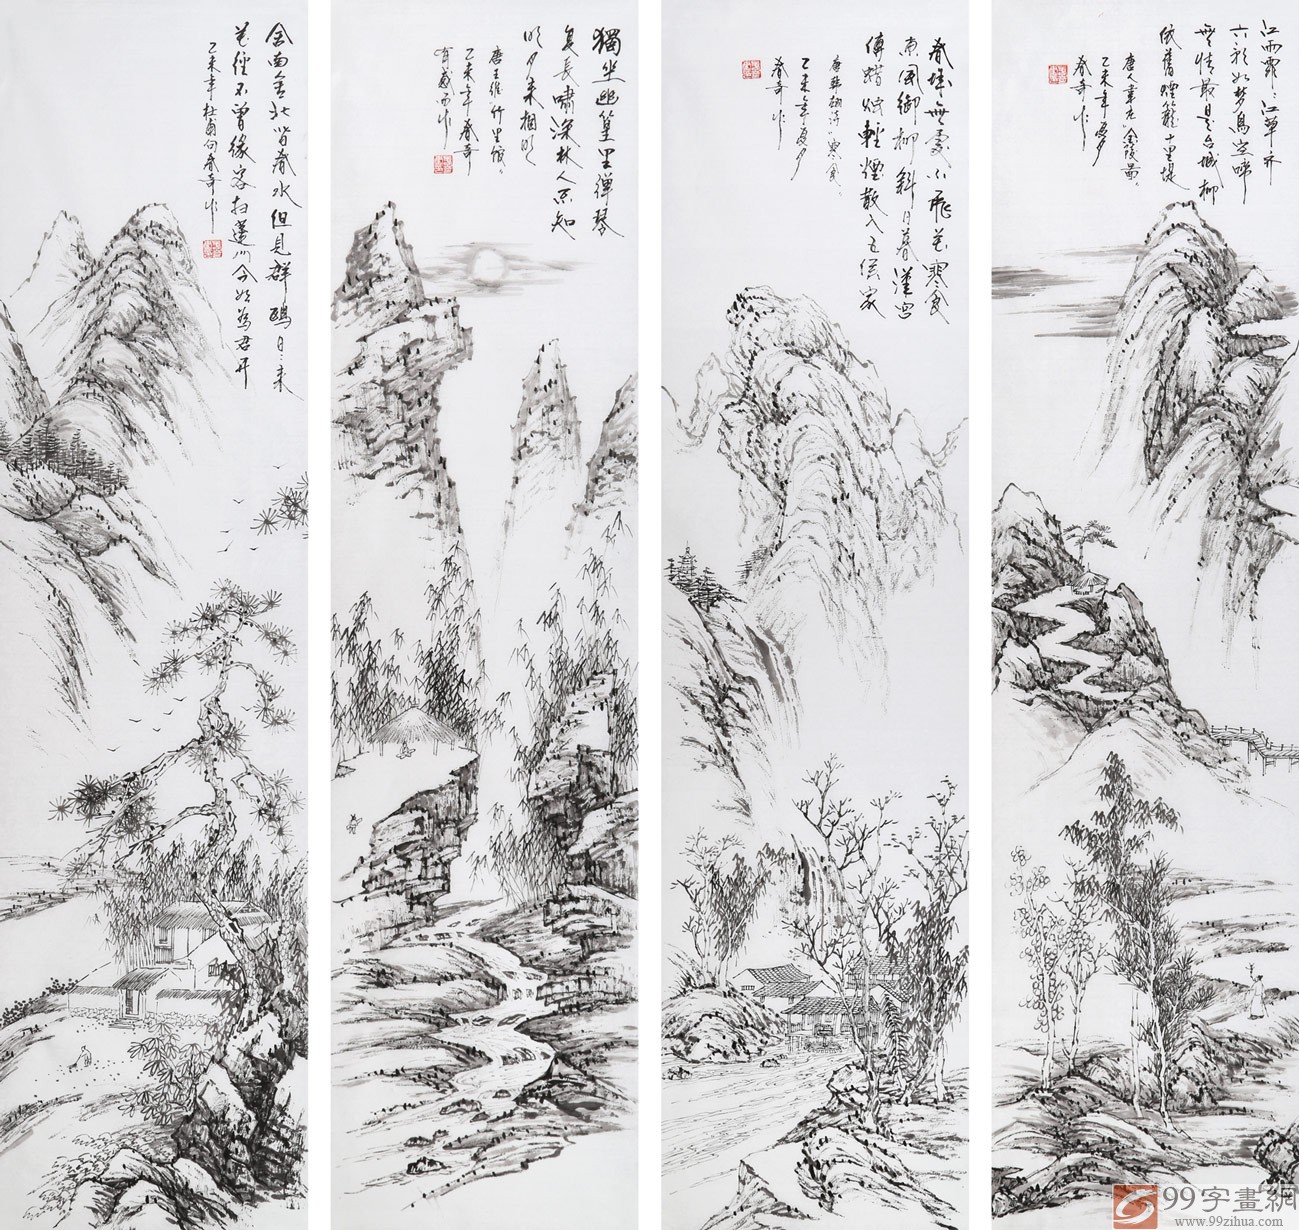 舍南舍北皆春水但見群鷗日〻来
花徑不曾緣客扫蓬门今始為君开
乙未年杜甫句春奇作
獨坐幽篁里彈琴
复長嘯深林人不知
明月来相照
唐王維竹里馆
乙未年春奇
有感而作
春城無處不飛花寒食
東風御柳斜日暮漢宮
傳蜡燭輕煙散入五侯家
唐韩翃诗寒食
乙未年夏夕
春奇作
江雨霏〻江草齐
六朝如梦鳥空啼
無情最是台城柳
依舊煙籠十里堤
唐人韋庄金陵圖
乙未年夏夕
春奇作
99字畫網
www.99zihua.com